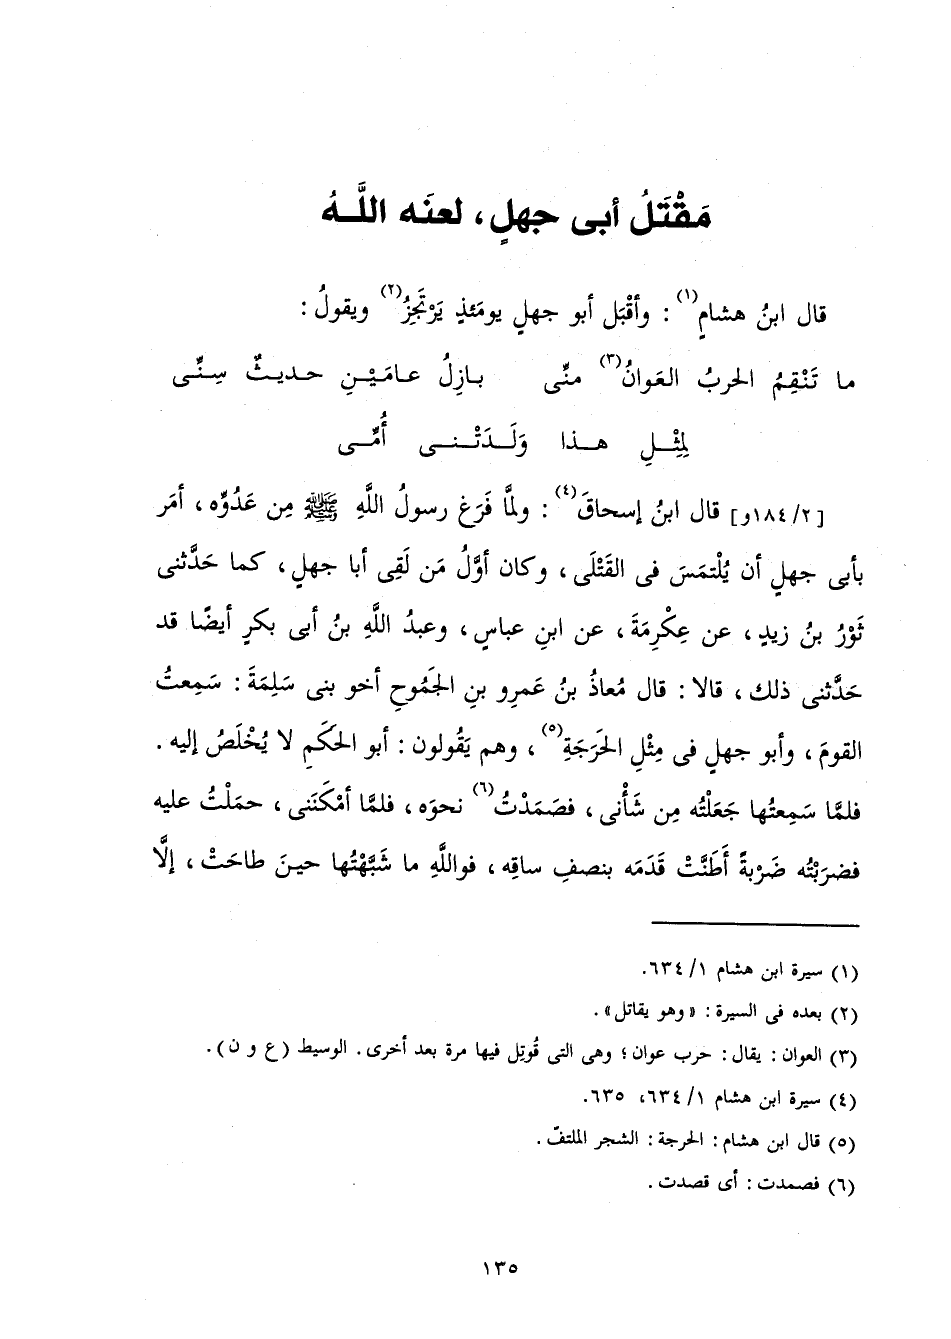 مَقْتَلُ أبى جهلٍ، لعنَه اللَّهُ
قال ابنُ هشامٍ(١) : وأقْبَل أبو جهلٍ يومَئذٍ يَرْتَجِزُ(٢) ويقولُ :
ما تَنْقِمُ الحربُ العَوانُ(٣) منِّى بازِلُ عامَيْنِ حديثٌ سِنِّى
لِمِثْلِ هذا وَلَدَتْنى أُمِّى
[١٨٤/٢و] قال ابنُ إسحاقَ(٤) : ولمَّا فَرَغ رسولُ اللَّهِ ﷺ مِن عَدُوِّه، أمَر
بأبى جهلٍ أن يُلْتمَسَ فى القَتْلَى، وكان أوَّلُ مَن لَقِى أبا جهلٍ، كما حَدَّثنى
ثَوْرُ بنُ زيدٍ، عن عِكْرِمَةَ، عن ابنِ عباسٍ، وعبدُ اللَّهِ بنُ أبى بكرٍ أيضًا قد
حَدَّثنى ذلك، قالا : قال مُعاذُ بنُ عَمرِو بنِ الجَمُوحِ أخو بنى سَلِمَةَ : سَمِعتُ
القومَ، وأبو جهلٍ فى مِثْلِ الحَرَجَةِ(٥)، وهم يَقُولون : أبو الحَكَمِ لا يُخْلَصُ إليه.
فلمَّا سَمِعتُها جَعَلْتُه مِن شَأْنى، فصَمَدْتُ(٦) نحوَه، فلمَّا أمْكَنَنى، حمَلْتُ عليه
فضرَبْتُه ضَرْبةً أَطَنَّتْ قَدَمَه بنصفِ ساقِه، فواللَّهِ ما شَبَّهْتُها حينَ طاحَتْ، إلَّا
(١) سيرة ابن هشام ١/ ٦٣٤.
(٢) بعده فى السيرة : «وهو يقاتل».
(٣) العوان : يقال : حرب عوان؛ وهى التى قُوتِل فيها مرة بعد أخرى. الوسيط (ع و ن).
(٤) سيرة ابن هشام ١/ ٦٣٤، ٦٣٥.
(٥) قال ابن هشام : الحرجة : الشجر الملتفّ.
(٦) فصمدت : أى قصدت.
١٣٥